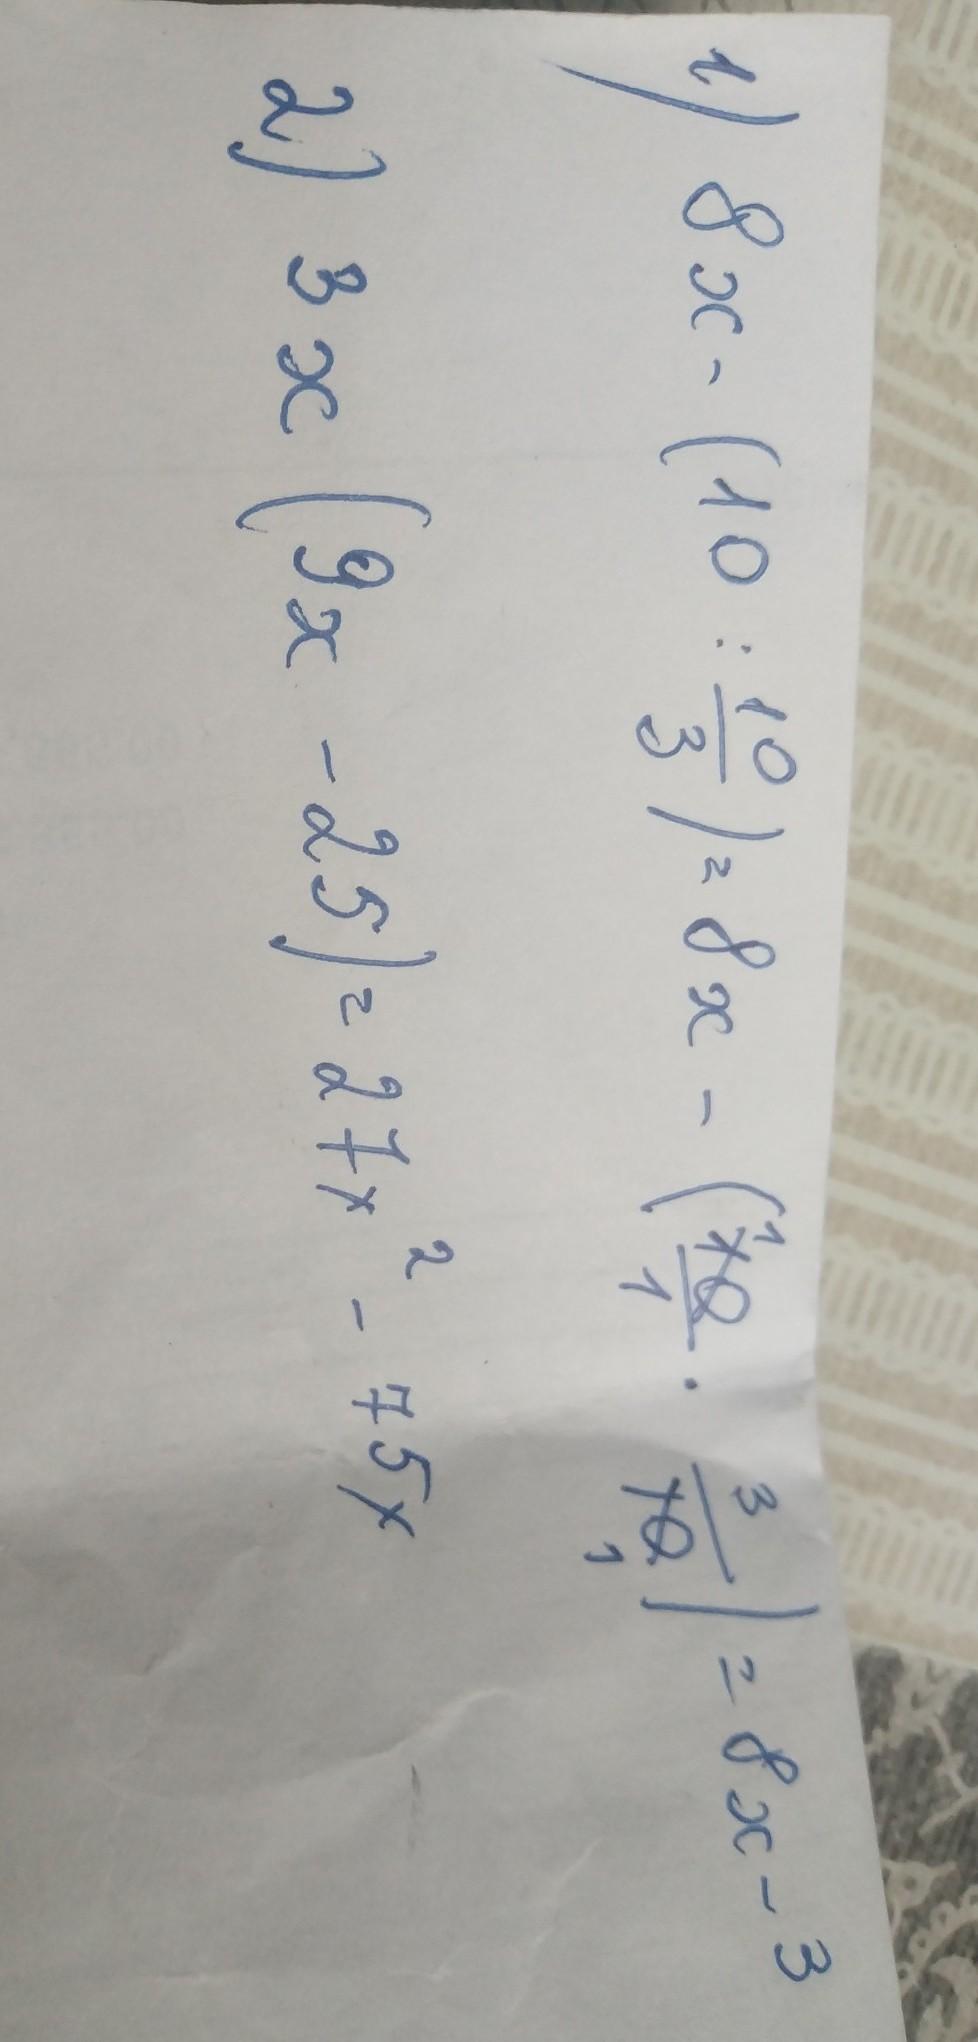 1) 8x - (10 : 10/3) = 8x - (10/1 1 · 3/10 1) = 8x - 3
2) 3x (9x - 25) = 27x² - 75x